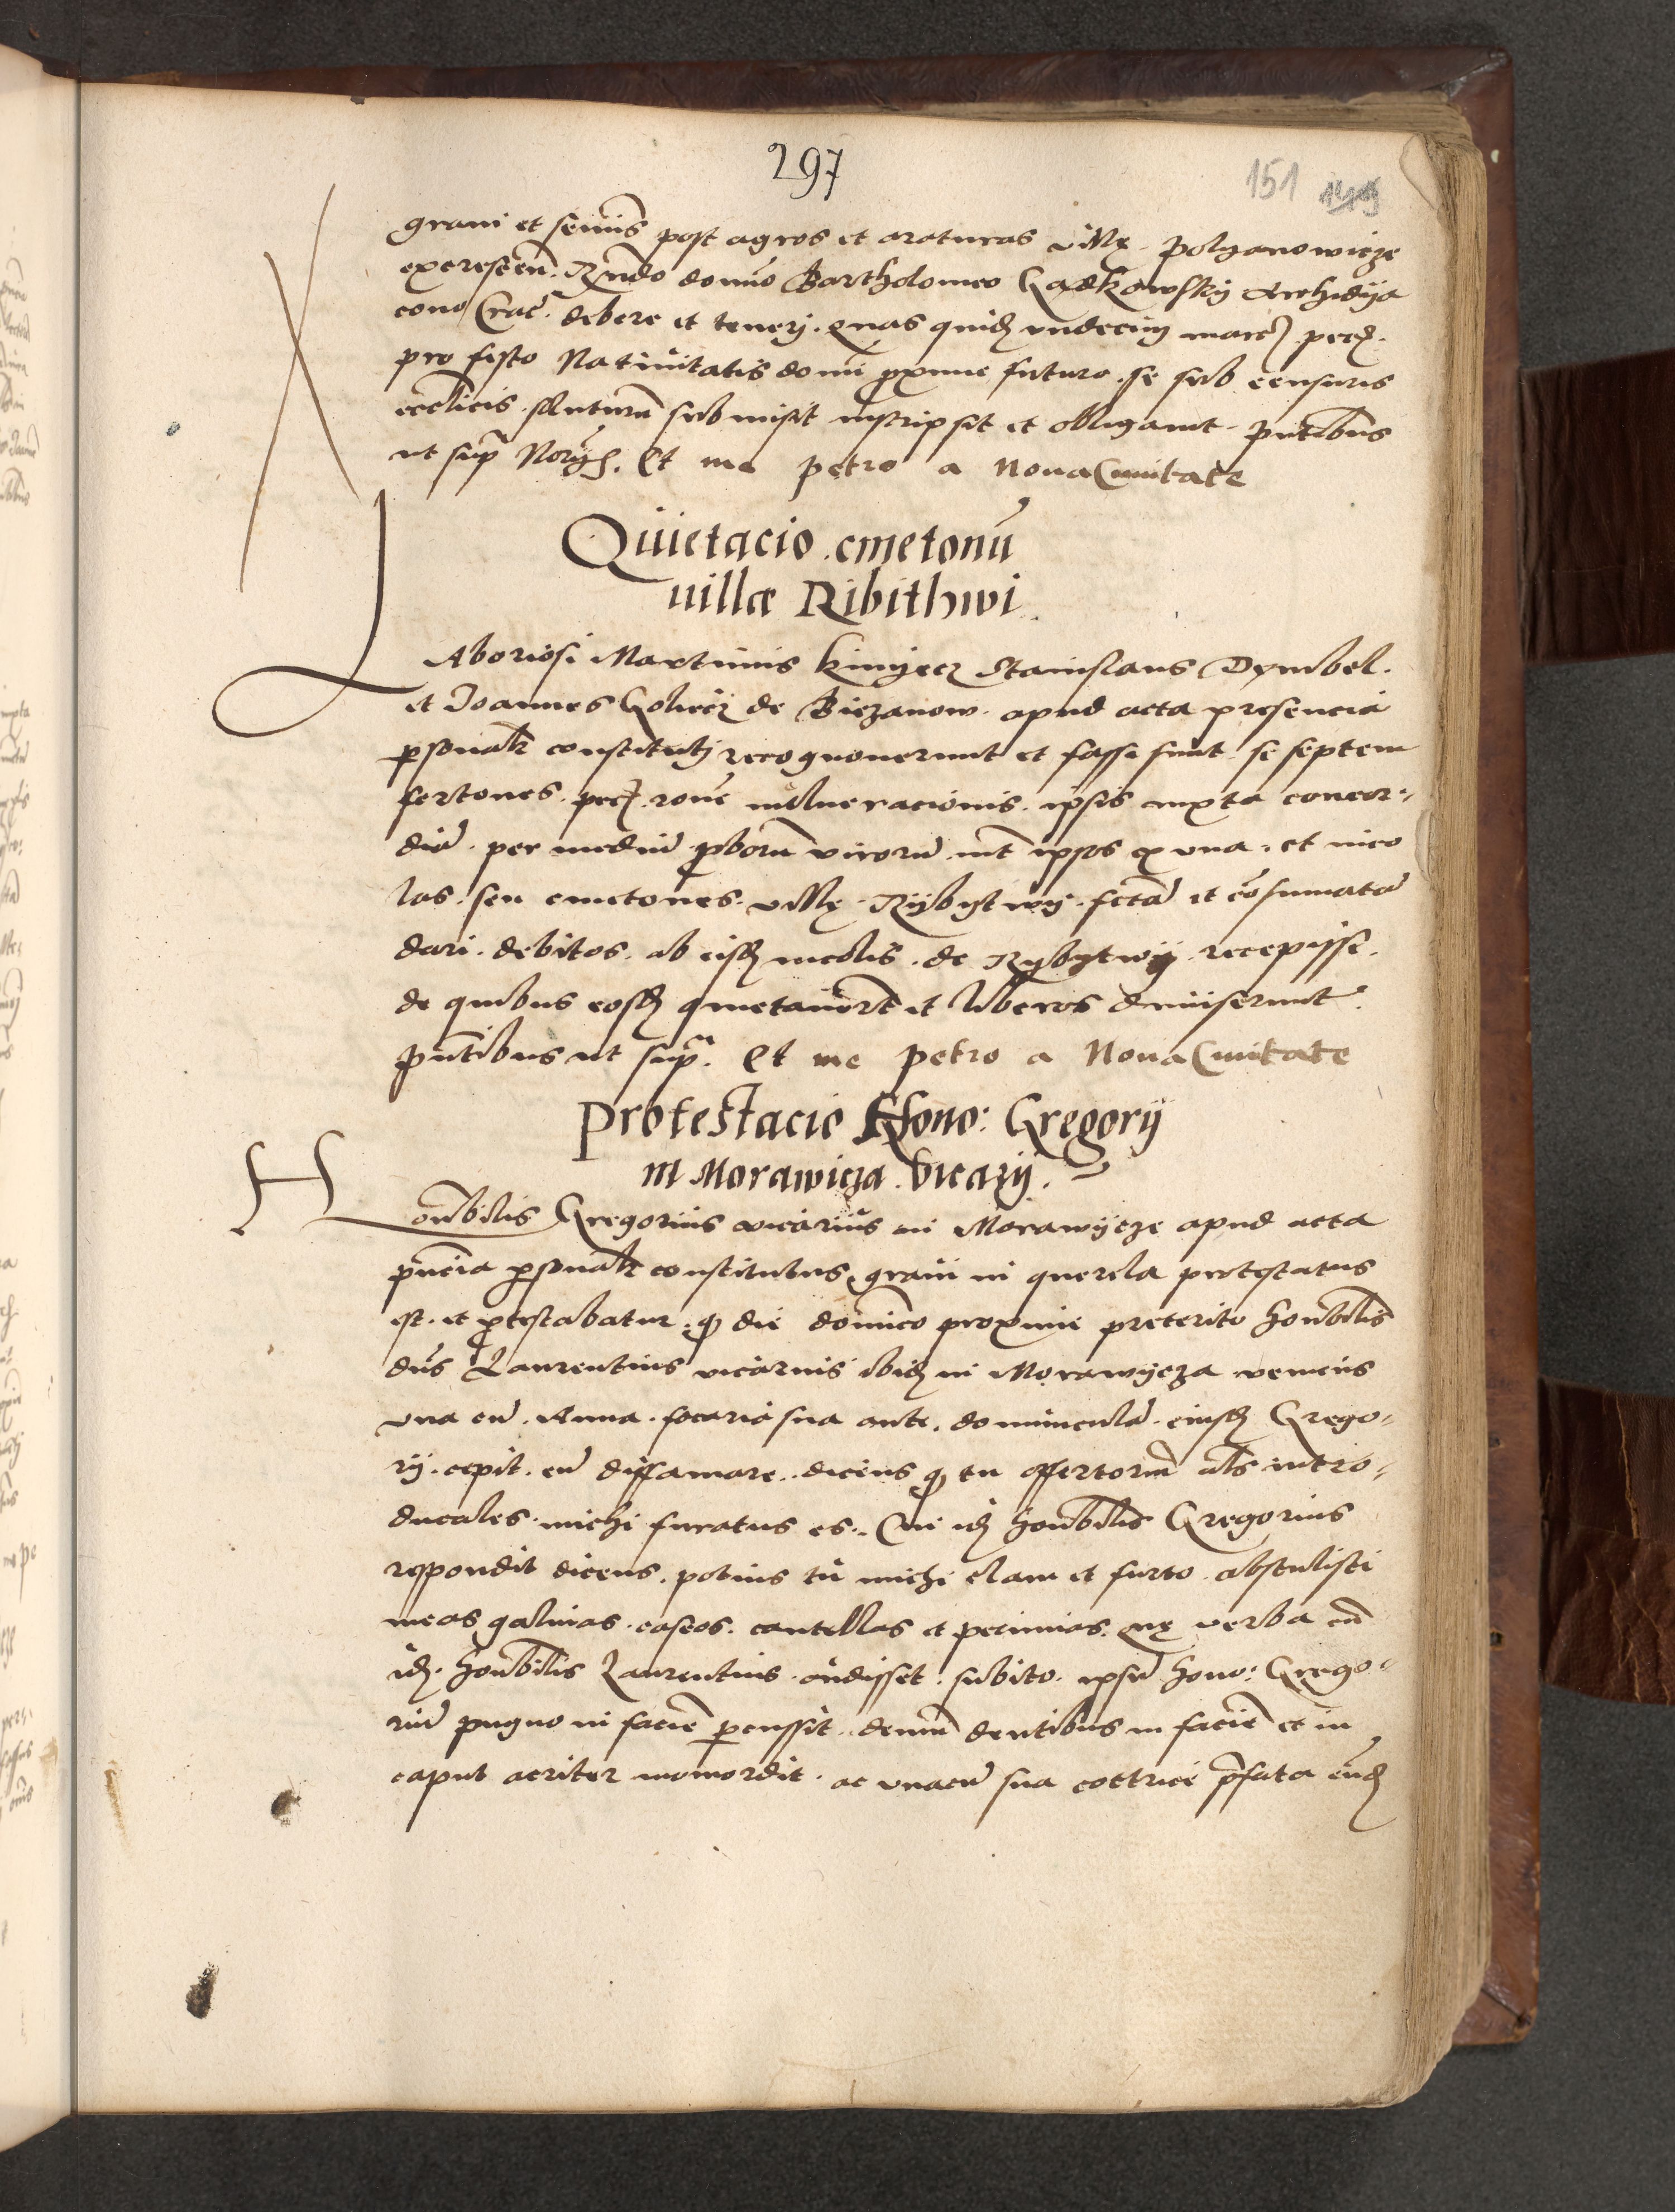 297
151 149
grani et seminis post agros et araturas villę. Polyanowicze
excrescen. Rndo domino Bartholomeo Gądkowsky Archidya
cono Crac. debere et tenery. quas quidem undecim marcas pecu.
pro festo Nativitatis domini proxime futuro. se sub censuris
ecclicis. soluturum submisit inscripsit et obligavit. pntibus
ut supra Norys. Et me petro a Nova Civitate
Quietacio cmetonū
villæ Ribithwi
LAboriosi Martinus Kmyecz Stanislaus Dymbel.
et Joannes Goliecz de Biezanow. apud acta presencia
personalr constituti recognoverunt et fassi sunt se septem
fertones. pecu. rone vulneracionis. ipsis iuxta concor-
diā. per mediū proborum virorū. int ipsos ex una. et inco
las. seu cmetones. villę. Rybytwy. fctā et cōsumatā
dari. debitos. ab eisdem incolis. de Rybytwy. recepisse.
de quibus eosdem quietavert et liberos dimiserunt.
pntibus ut supra. Et me petro a Nova Civitate
Protestacio Hono: Gregorij
in Morawicza. Vicarij.
Honbilis Gregorius vicarius in Morawycze apud acta
pncia personalr constitutus, gravi in querela protestatus
est. et protestabatur. quod die dominico proxime preterito honbilis
dns Laurentius vicarius ibidem in Morawycza veniens
una cū. Anna. focaria sua ante. domunculā. eiusdem Grego-
rij. cepit. eū diffamare. dicens quod tu offertoriū als intro-
ducales. michi furatus es. Cui idem honbilis Gregorius
respondit dicens. potius tu michi clam et furto abstulisti
meas galinas. caseos. cantellas et pecunias. quę verba cū
idem. honbilis Laurentius. audisset. subito. ipsū hono: Grego-
riū pugno in faciē percussit. demū dentibus in faciē et in
caput acriter momordit. ac unacū sua coctrice pfata eundem